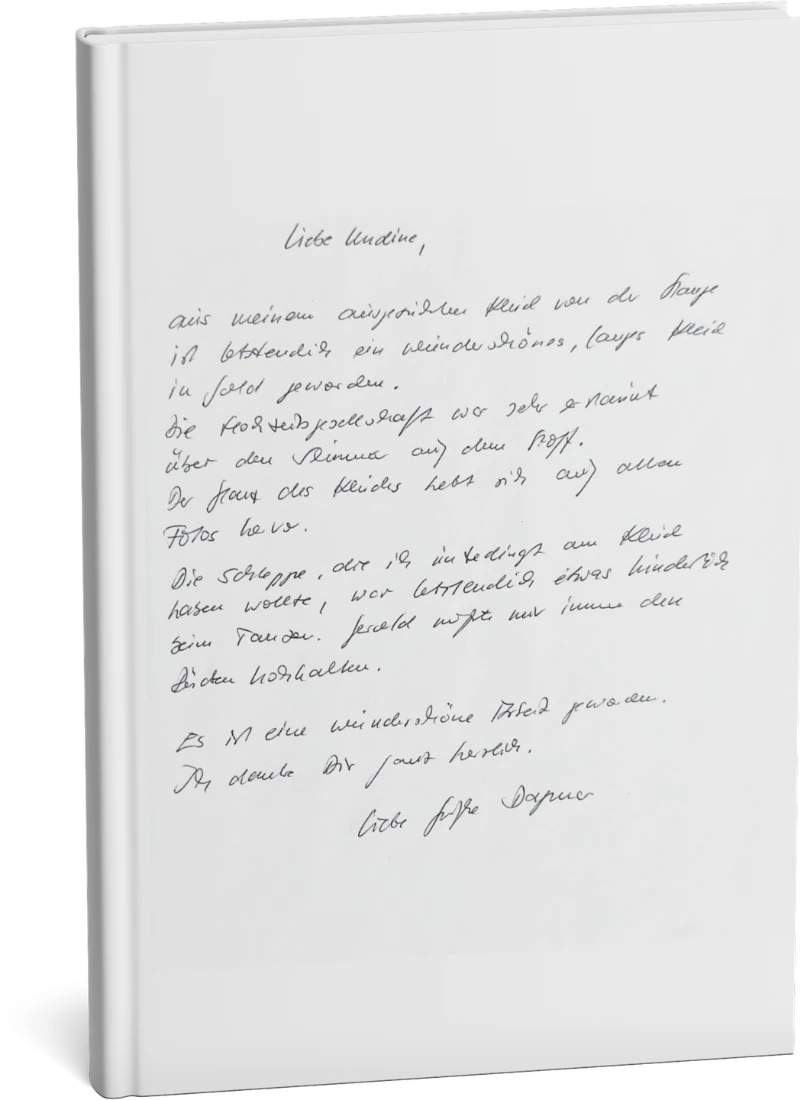 Liebe Undine,
aus meinem ausgesuchten Kleid von der Stange
ist letztendlich ein wunderschönes, langes Kleid
in Gold geworden.
Die Hochzeitsgesellschaft war sehr erstaunt
über den Schimmer auf dem Stoff.
Der Glanz des Kleides hebt sich auf allen
Fotos hervor.
Die Schleppe, die ich unbedingt am Kleid
haben wollte, war letztendlich etwas hinderlich
beim Tanzen. Gerald mußte mir immer den
hochhalten.
Es ist eine wunderschöne Arbeit geworden.
Ich danke Dir ganz herzlich.
Liebe Grüße Dagmar